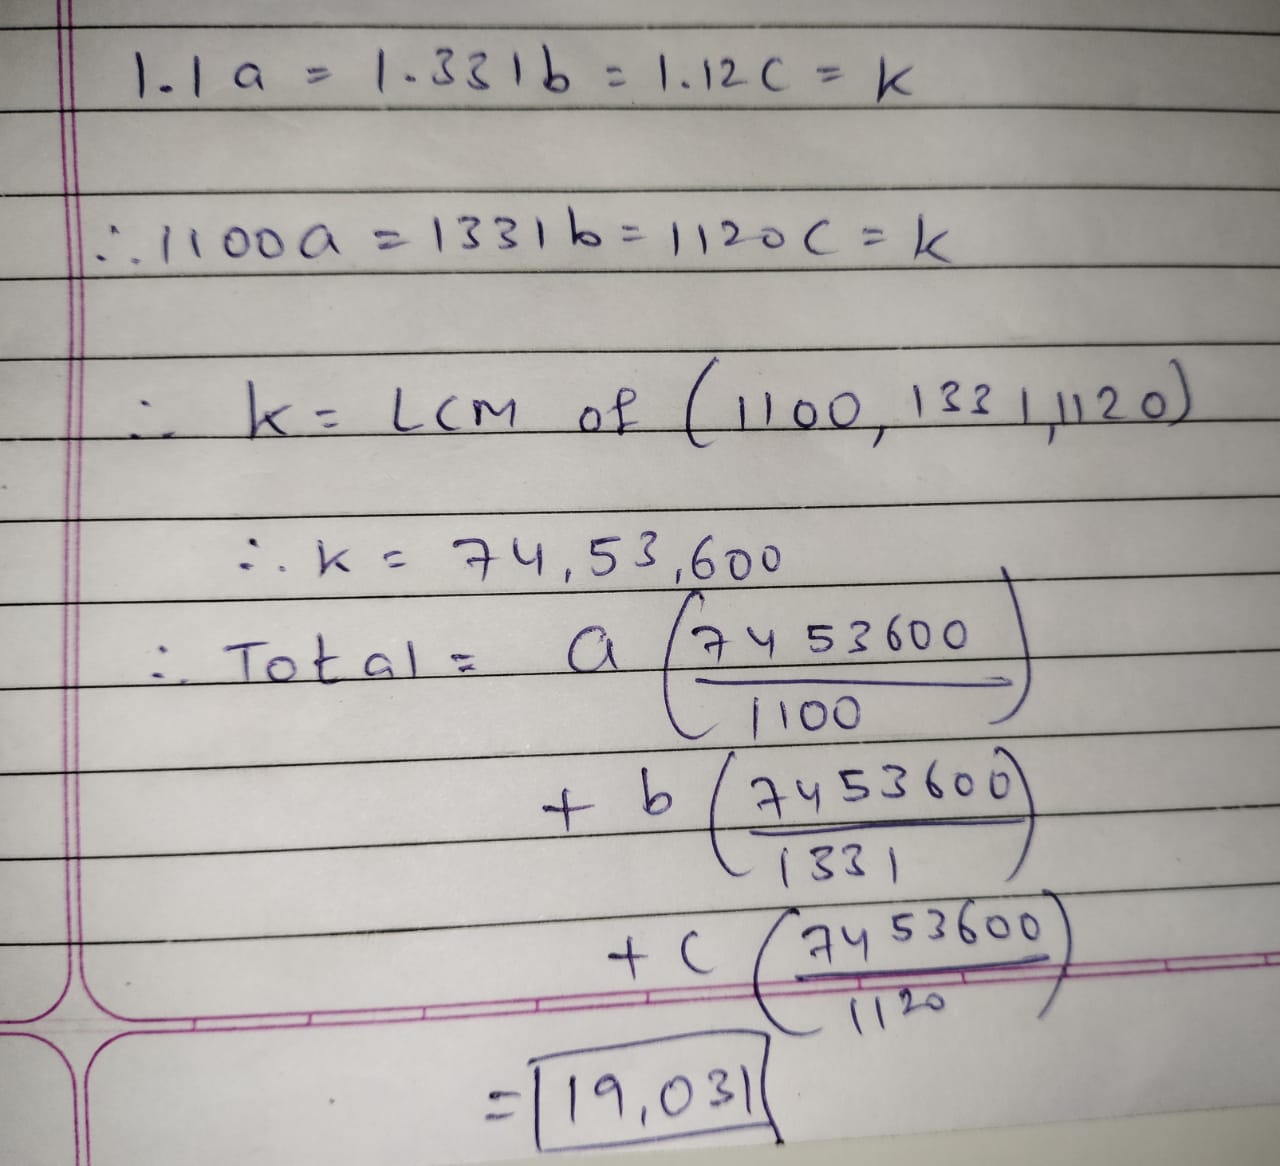 1.1a = 1.331b = 1.12c = k
∴ 1100a = 1331b = 1120c = k
∴ k = LCM of (1100, 1331, 1120)
∴ k = 74,53,600
∴ Total = a (7453600/1100)
+ b (7453600/1331)
+ c (7453600/1120)
= 19,031